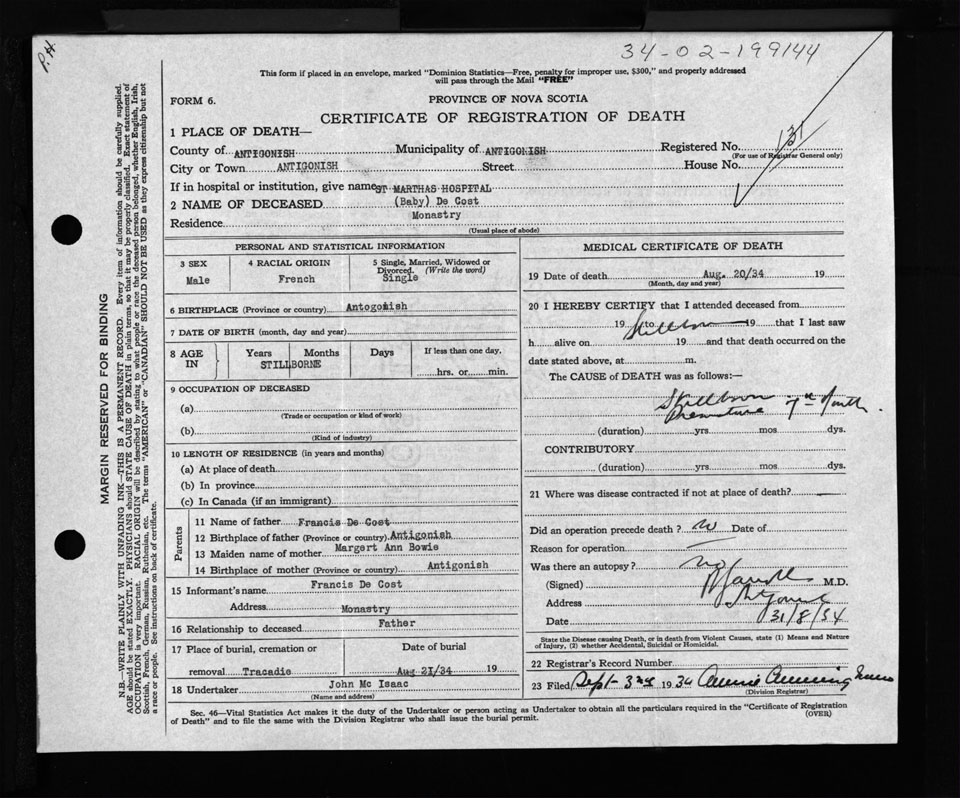 34-02-199144
P.H.
This form if placed in an envelope, marked "Dominion Statistics—Free, penalty for improper use, $300," and properly addressed
will pass through the Mail "FREE"
FORM 6.
PROVINCE OF NOVA SCOTIA
CERTIFICATE OF REGISTRATION OF DEATH
1 PLACE OF DEATH—
County of ANTIGONISH Municipality of ANTIGONISH Registered No. 131
(For use of Registrar General only)
City or Town ANTIGONISH Street House No.
If in hospital or institution, give name ST MARTHAS HOSPITAL
2 NAME OF DECEASED (Baby) De Cost
Residence Monastry
(Usual place of abode)
PERSONAL AND STATISTICAL INFORMATION
3 SEX 4 RACIAL ORIGIN 5 Single, Married, Widowed or
Divorced. (Write the word)
Male French Single
6 BIRTHPLACE (Province or country) Antogonish
7 DATE OF BIRTH (month, day and year)
8 AGE IN Years Months Days If less than one day.
STILLBORNE
hrs. or min.
9 OCCUPATION OF DECEASED
(a)
(Trade or occupation or kind of work)
(b)
(Kind of industry)
10 LENGTH OF RESIDENCE (in years and months)
(a) At place of death
(b) In province
(c) In Canada (if an immigrant)
Parents
11 Name of father Francis De Cost
12 Birthplace of father (Province or country) Antigonish
13 Maiden name of mother Margert Ann Bowie
14 Birthplace of mother (Province or country) Antigonish
15 Informant's name Francis De Cost
Address Monastry
16 Relationship to deceased Father
17 Place of burial, cremation or Date of burial
removal Tracadie Aug 21/34 19
18 Undertaker John Mc Isaac
(Name and address)
MEDICAL CERTIFICATE OF DEATH
19 Date of death Aug. 20/34 19
(Month, day and year)
20 I HEREBY CERTIFY that I attended deceased from
19 to Stillborn 19 that I last saw
h alive on 19 and that death occurred on the
date stated above, at m.
The CAUSE of DEATH was as follows:—
Stillborn
Premature 7th Month.
(duration) yrs. mos dys.
CONTRIBUTORY
(duration) yrs. mos. dys.
21 Where was disease contracted if not at place of death?
Did an operation precede death? no Date of
Reason for operation
Was there an autopsy? no
(Signed) M.D.
Address
Date 31/8/34
State the Disease causing Death, or in death from Violent Causes, state (1) Means and Nature
of Injury, (2) whether Accidental, Suicidal or Homicidal.
22 Registrar's Record Number
23 Filed Sept 3rd 1934 Annie Cunningham
(Division Registrar)
Sec. 46—Vital Statistics Act makes it the duty of the Undertaker or person acting as Undertaker to obtain all the particulars required in the "Certificate of Registration
of Death" and to file the same with the Division Registrar who shall issue the burial permit. (OVER)
MARGIN RESERVED FOR BINDING
N.B.—WRITE PLAINLY WITH UNFADING INK—THIS IS A PERMANENT RECORD. Every item of information should be carefully supplied.
AGE should be stated EXACTLY. PHYSICIANS should STATE CAUSE OF DEATH in plain terms, so that it may be properly classified. Exact statement of
OCCUPATION is very important. RACIAL ORIGIN will be described by stating to what people or race the deceased person belonged, whether English, Irish,
Scottish, French, German, Russian, Ruthenian, etc. The terms "AMERICAN" or "CANADIAN" SHOULD NOT BE USED as they express citizenship but not
a race or people. See instructions on back of certificate.